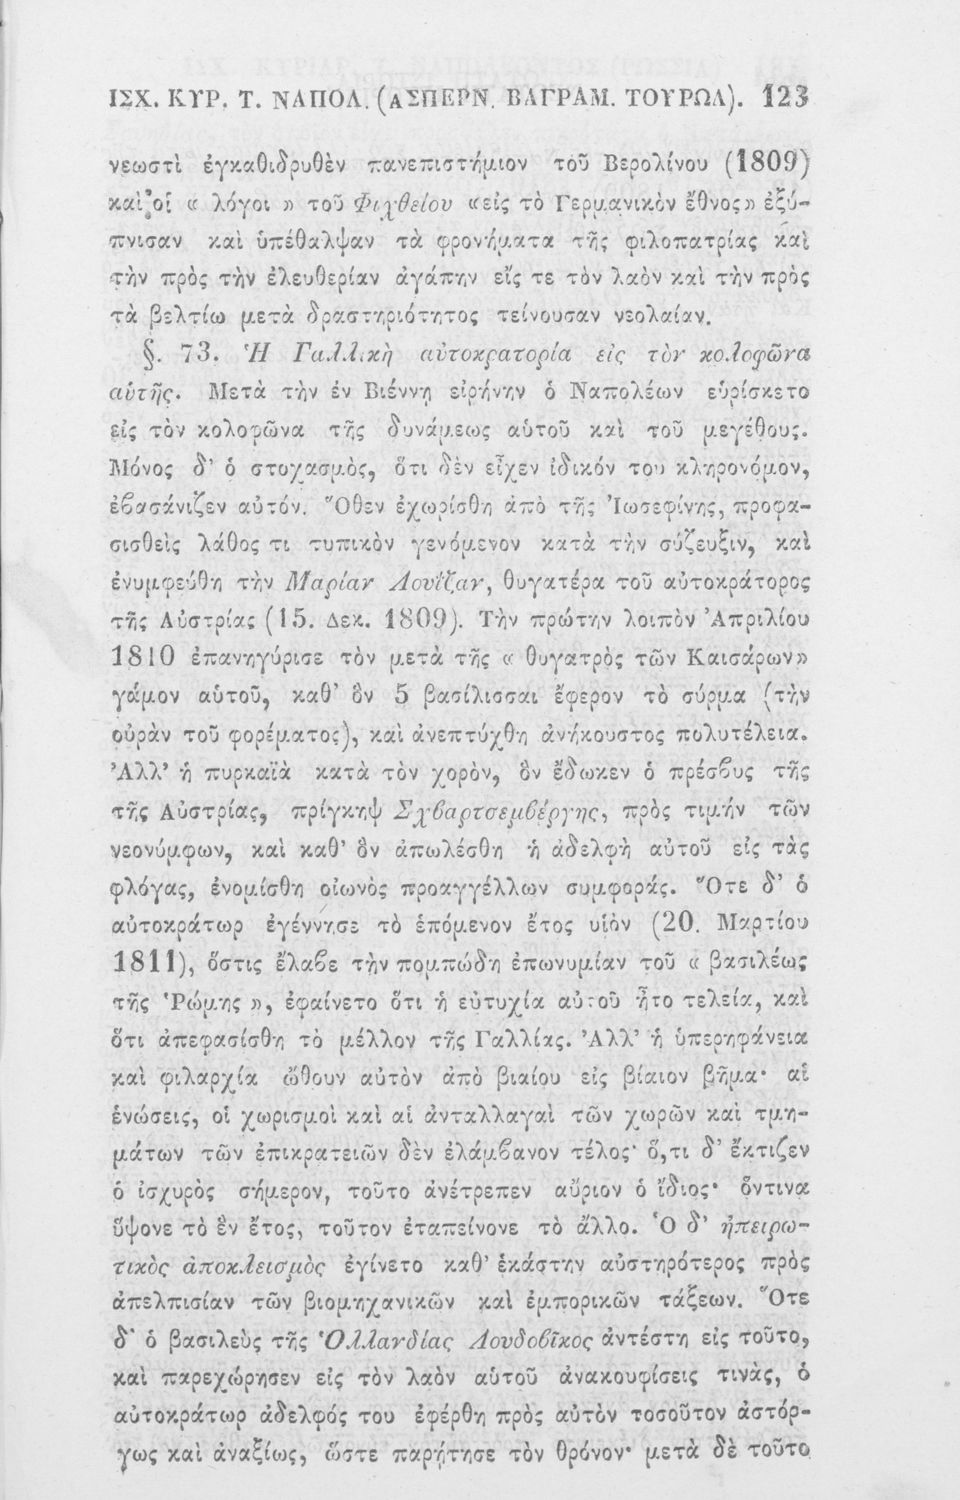 ΙΣΧ. ΚΥΡ. Τ. ΝΑΠΟΛ. (ΑΣΠΕΡΝ. ΒΑΓΡΑΜ. ΤΟΥΡΩΛ). 123
νεωστὶ ἐγκαθιδρυθὲν πανεπιστήμιον τοῦ Βερολίνου (1809)
καὶ οἱ « λόγοι » τοῦ Φιχθείου «εἰς τὸ Γερμανικὸν ἔθνος» ἐξύ-
πνισαν καὶ ὑπέθαλψαν τὰ φρονήματα τῆς φιλοπατρίας καὶ
τὴν πρὸς τὴν ἐλευθερίαν ἀγάπην εἴς τε τὸν λαὸν καὶ τὴν πρὸς
τὰ βελτίω μετὰ δραστηριότητος τείνουσαν νεολαίαν.
§. 73. Ἡ Γαλλικὴ αὐτοκρατορία εἰς τὸν κολοφῶνα
αὑτῆς. Μετὰ τὴν ἐν Βιέννῃ εἰρήνην ὁ Ναπολέων εὑρίσκετο
εἰς τὸν κολοφῶνα τῆς δυνάμεως αὑτοῦ καὶ τοῦ μεγέθους.
Μόνος δ' ὁ στοχασμὸς, ὅτι δὲν εἶχεν ἰδικόν του κληρονόμον,
ἐβασάνιζεν αὐτόν. Ὅθεν ἐχωρίσθη ἀπὸ τῆς Ἰωσεφίνης, προφα-
σισθεὶς λάθος τι τυπικὸν γενόμενον κατὰ τὴν σύζευξιν, καὶ
ἐνυμφεύθη τὴν Μαρίαν Λουΐζαν, θυγατέρα τοῦ αὐτοκράτορος
τῆς Αὐστρίας (15. Δεκ. 1809). Τὴν πρώτην λοιπὸν Ἀπριλίου
1810 ἐπανηγύρισε τὸν μετὰ τῆς « θυγατρὸς τῶν Καισάρων»
γάμον αὑτοῦ, καθ' ὃν 5 βασίλισσαι ἔφερον τὸ σύρμα (τὴν
οὐρὰν τοῦ φορέματος), καὶ ἀνεπτύχθη ἀνήκουστος πολυτέλεια.
Ἀλλ' ἡ πυρκαϊὰ κατὰ τὸν χορὸν, ὃν ἔδωκεν ὁ πρέσβυς τῆς
τῆς Αὐστρίας, πρίγκηψ Σχβαρτσεμβέργης, πρὸς τιμήν τῶν
νεονύμφων, καὶ καθ' ὃν ἀπωλέσθη ἡ ἀδελφὴ αὐτοῦ εἰς τὰς
φλόγας, ἐνομίσθη οἰωνὸς προαγγέλλων συμφοράς. Ὅτε δ' ὁ
αὐτοκράτωρ ἐγέννησε τὸ ἑπόμενον ἔτος υἱὸν (20. Μαρτίου
1811), ὅστις ἔλαβε τὴν πομπώδη ἐπωνυμίαν τοῦ « βασιλέως
τῆς Ῥώμης », ἐφαίνετο ὅτι ἡ εὐτυχία αὐτοῦ ἦτο τελεία, καὶ
ὅτι ἀπεφασίσθη τὸ μέλλον τῆς Γαλλίας. Ἀλλ' ἡ ὑπερηφάνεια
καὶ φιλαρχία ὤθουν αὐτὸν ἀπὸ βιαίου εἰς βίαιον βῆμα· αἱ
ἑνώσεις, οἱ χωρισμοὶ καὶ αἱ ἀνταλλαγαὶ τῶν χωρῶν καὶ τμη-
μάτων τῶν ἐπικρατειῶν δὲν ἐλάμβανον τέλος· ὅ,τι δ' ἔκτιζεν
ὁ ἰσχυρὸς σήμερον, τοῦτο ἀνέτρεπεν αὔριον ὁ ἴδιος· ὅντινα
ὕψονε τὸ ἓν ἔτος, τοῦτον ἐταπείνονε τὸ ἄλλο. Ὁ δ' ἠπειρω-
τικὸς ἀποκλεισμὸς ἐγίνετο καθ' ἑκάστην αὐστηρότερος πρὸς
ἀπελπισίαν τῶν βιομηχανικῶν καὶ ἐμπορικῶν τάξεων. Ὅτε
δ' ὁ βασιλεὺς τῆς Ὁλλανδίας Λουδοβῖκος ἀντέστη εἰς τοῦτο,
καὶ παρεχώρησεν εἰς τὸν λαὸν αὑτοῦ ἀνακουφίσεις τινὰς, ὁ
αὐτοκράτωρ ἀδελφός του ἐφέρθη πρὸς αὐτὸν τοσοῦτον ἀστόρ-
γως καὶ ἀναξίως, ὥστε παρῄτησε τὸν θρόνον· μετὰ δὲ τοῦτο